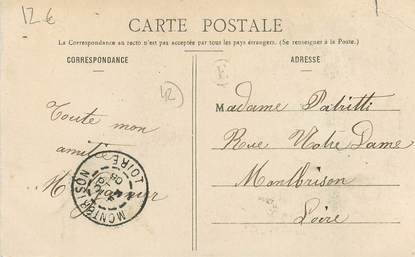 12 €
CARTE POSTALE
La Correspondance au recto n'est pas acceptée par tous les pays étrangers. (Se renseigner à la Poste.)
CORRESPONDANCE
ADRESSE
42
E
Toute mon
amitié
M
MONTBRISON
LOIRE
Madame Patritti
Rue Notre Dame
Montbrison
Loire